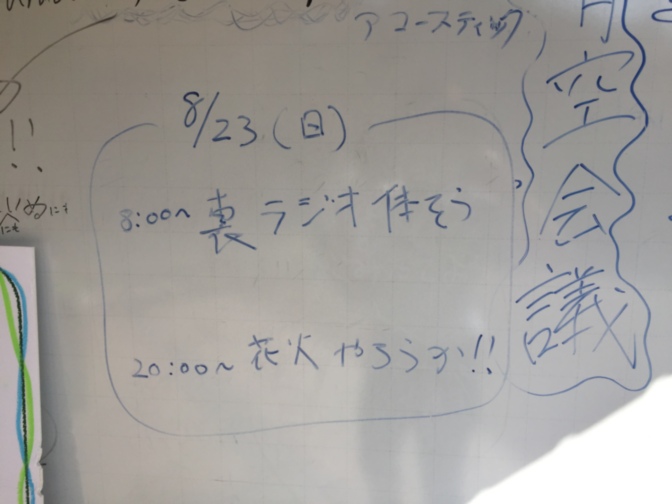 アコースティック
8/23（日）
8:00~ 裏ラジオ体そう
20:00~ 花火やろうか!!
空会議
!!